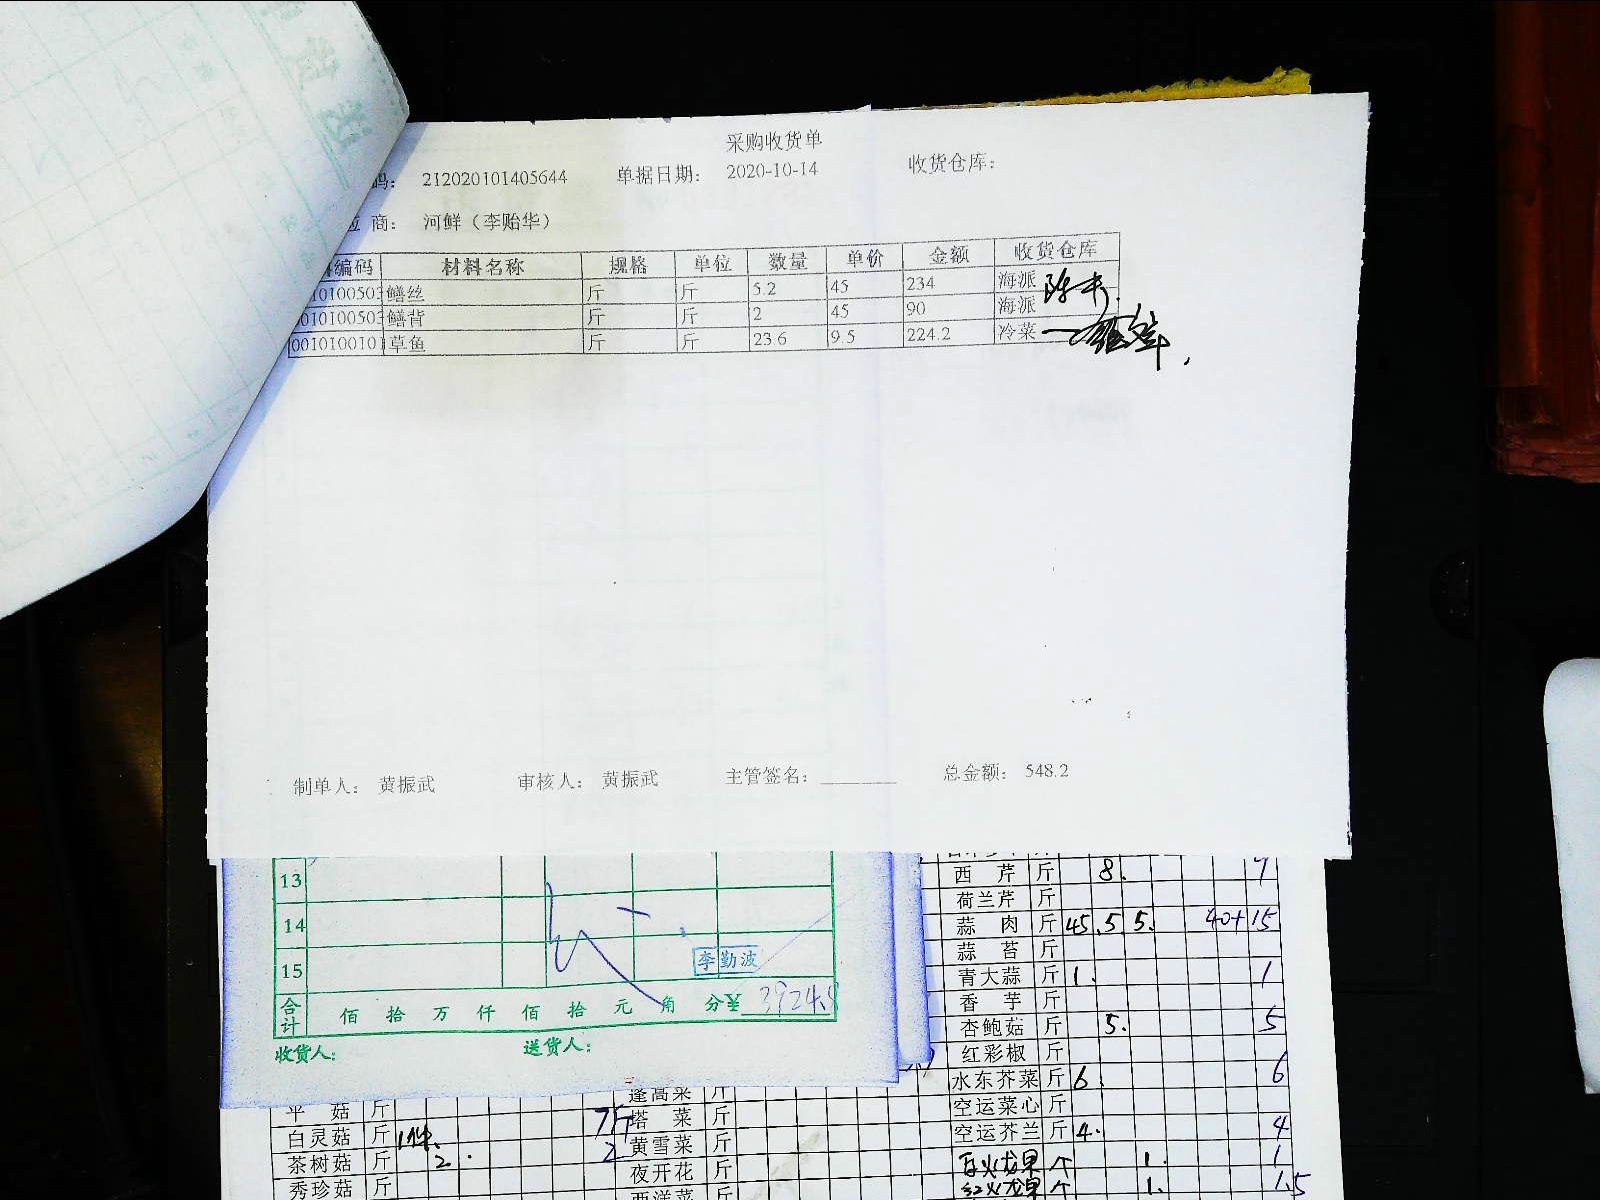 采购收货单
码： 212020101405644 单据日期： 2020-10-14 收货仓库：
应 商： 河鲜（李贻华）
编码 材料名称 规格 单位 数量 单价 金额 收货仓库
010100503 鳝丝 斤 斤 5.2 45 234 海派
010100503 鳝背 斤 斤 2 45 90 海派
001010010 草鱼 斤 斤 23.6 9.5 224.2 冷菜
制单人： 黄振武 审核人： 黄振武 主管签名： 总金额： 548.2
13
14
15
李勤波
合计 佰 拾 万 仟 佰 拾 元 角 分¥ 3924.5
收货人： 送货人：
西 芹 斤 8.
荷兰芹 斤
蒜 肉 斤 45. 5. 5. 40+15
蒜 苔 斤
青大蒜 斤 1. 1
香 芋 斤
杏鲍菇 斤 5. 5
红彩椒 斤
水东芥菜 斤 6. 6
空运菜心 斤
空运芥兰 斤 4. 4
白火龙果 个 1. 1
红火龙果 个 1. 1.5
平 菇 斤 7斤
白灵菇 斤 1件. 2
茶树菇 斤 2.
秀珍菇 斤
蓬蒿菜 斤
塔 菜 斤
黄雪菜 斤
夜开花 斤
西洋菜 斤